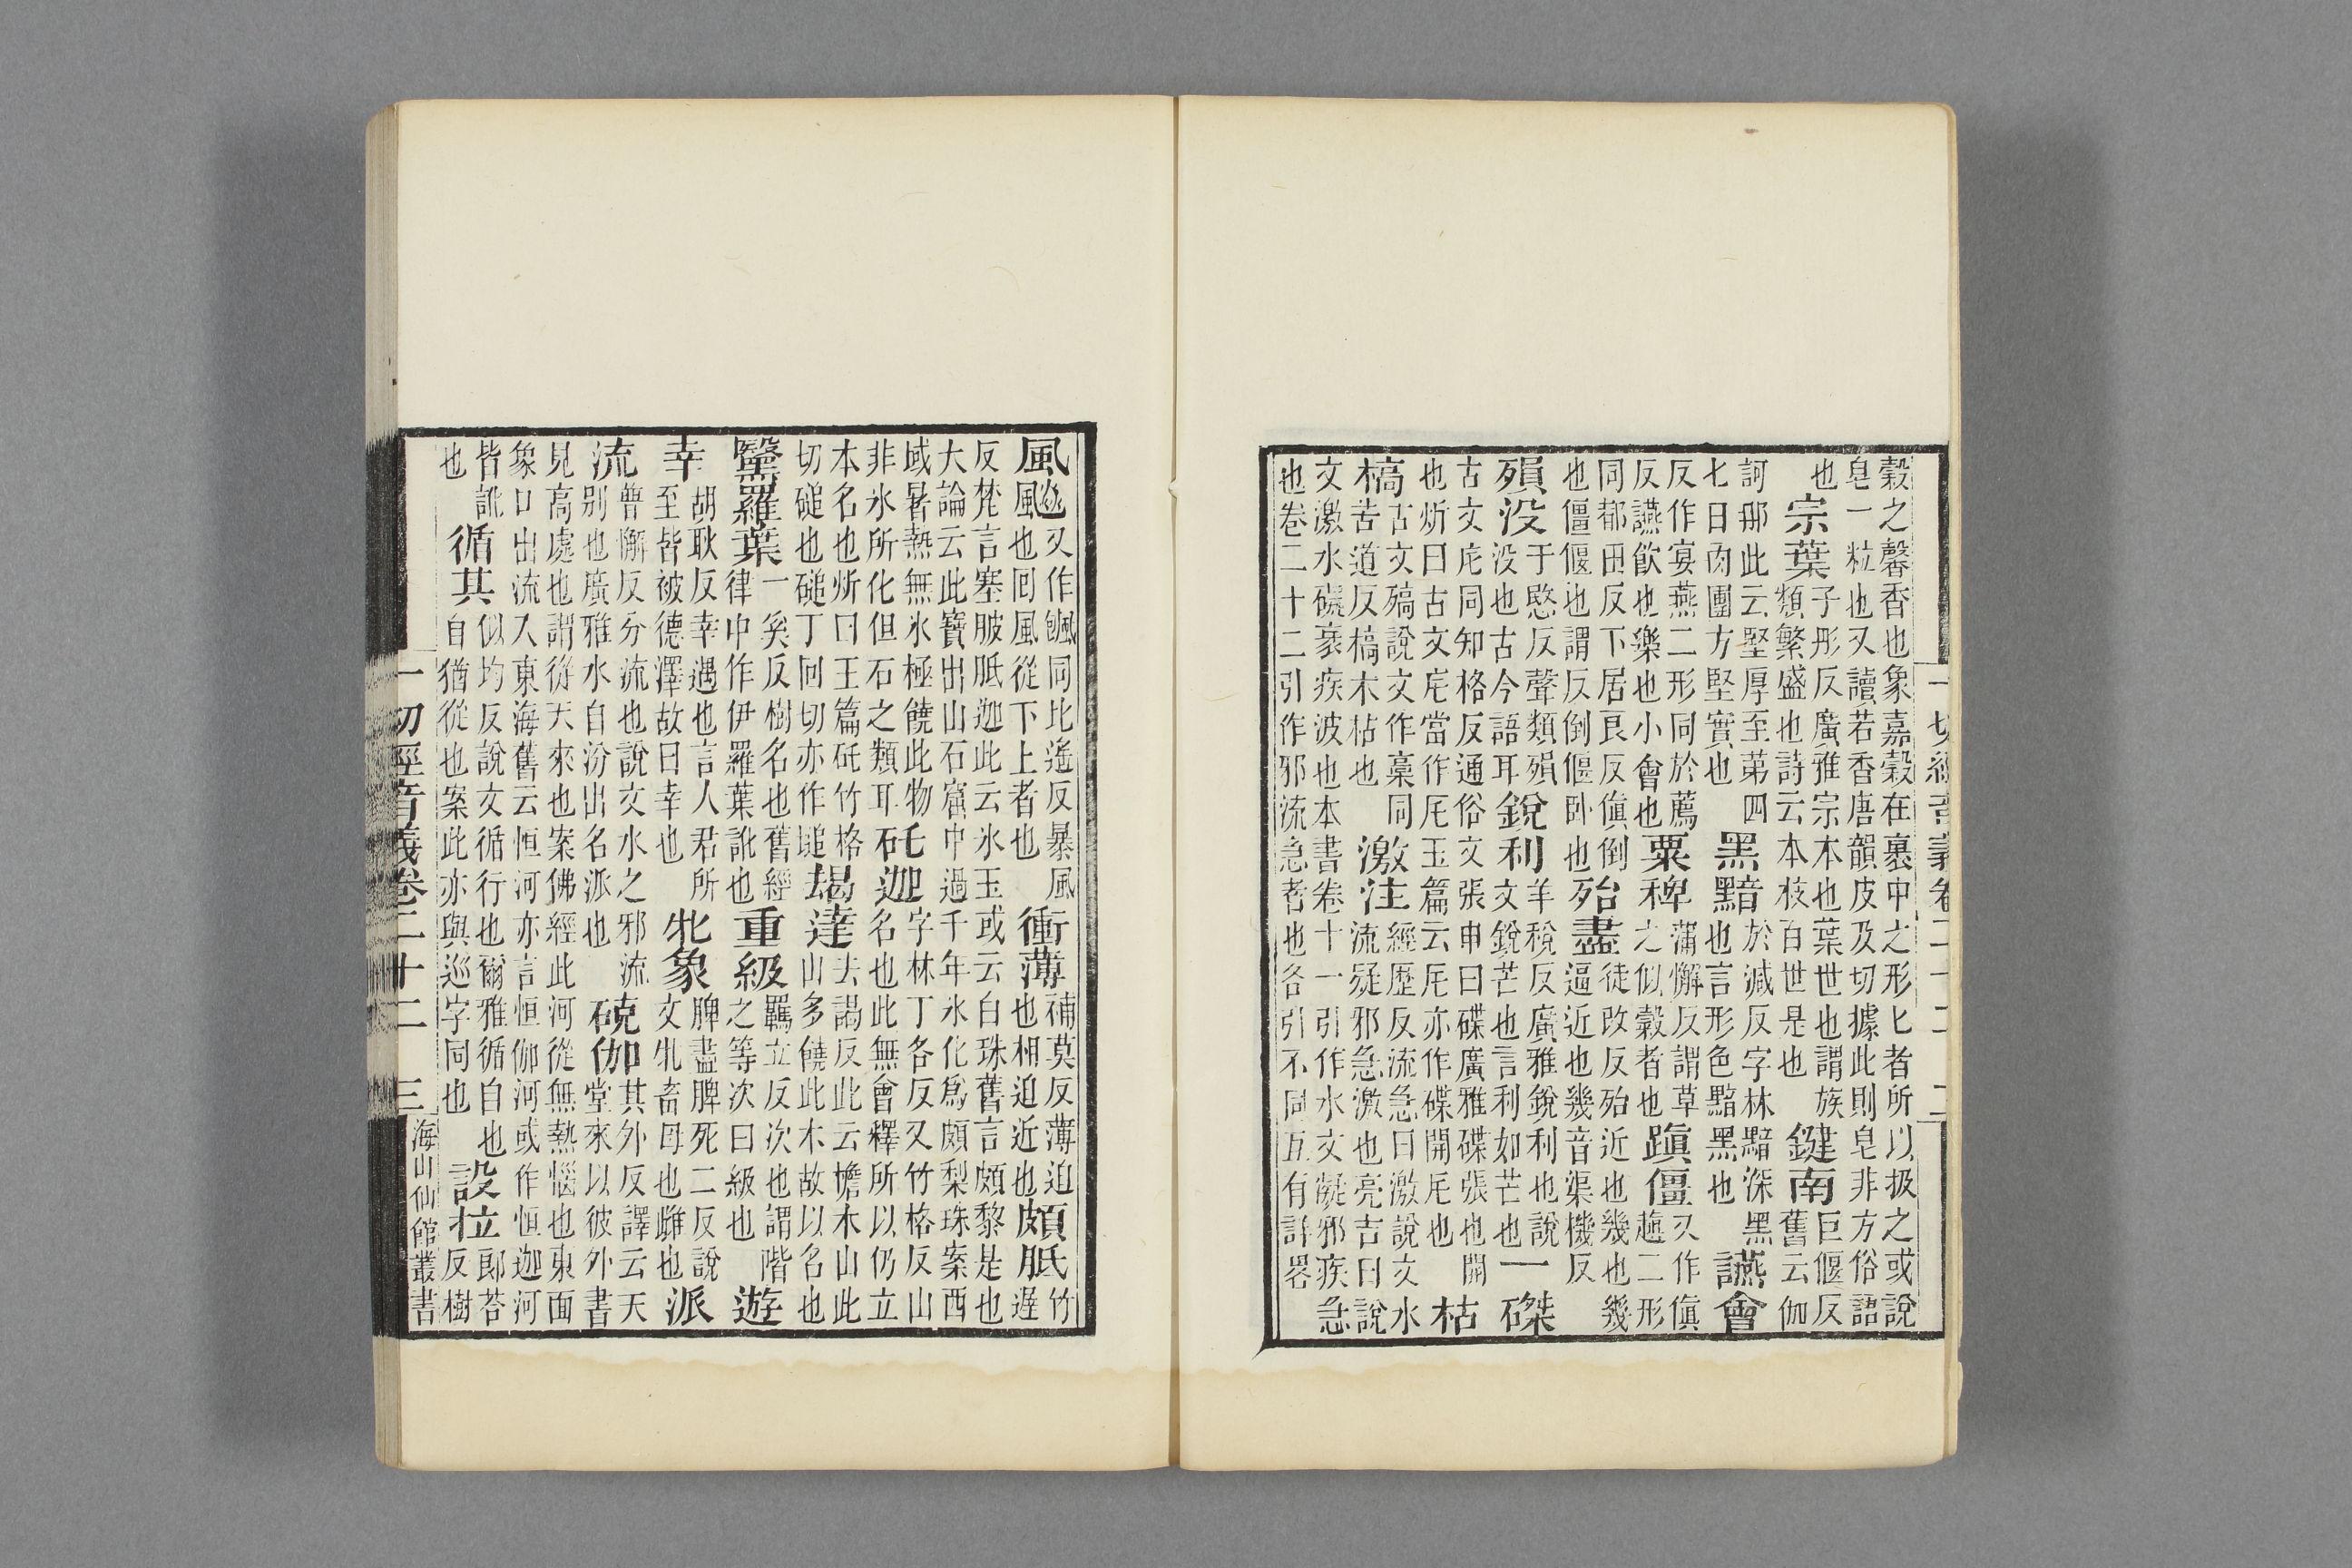 一切經音義卷二十二 二
穀之馨香也象嘉穀在裹中之形匕者所以扱之或說
皂一粒也又讀若香唐韻皮及切據此則皂非方俗語
也 宗葉 子彤反廣雅宗本也葉世也謂族類繁盛也詩云本枝百世是也 鍵南 巨偃反舊云伽
訶那此云堅厚至第四七日肉團方堅實也 黑黯 於減反字林黯深黑也言形色黯黑也 讌會
又作宴燕二形同於薦反讌飲也樂也小會也 粟稗 蒲懈反謂草之似穀者也 蹎僵 又作傎二形
同都田反下居良反傎倒也僵偃也謂反倒偃臥也 殆盡 徒改反殆近也幾也幾逼近也幾音渠機反
殞没 于愍反聲類殞没也古今語耳 銳利 羊稅反廣雅銳利也說文銳芒也言利如芒也 一磔
古文㡯同知格反通俗文張申曰磔廣雅磔張也開
也炘曰古文㡯當作厇玉篇云厇亦作磔開厇也 枯
槁 古文殦說文作稾同苦道反槁木枯也 激注 經歷反流急曰激說文水流疑邪急激也亮吉曰說
文激水礙衺疾波也本書卷十一引作水文礙邪疾急
也卷二十二引作邪流急者也各引不同互有詳畧
風飈 又作飇同比遙反暴風也回風從下上者也 衝薄 補莫反薄迫也相迫近也 頗胝 竹遅
反梵言塞頗胝迦此云水玉或云白珠舊言頗黎是也
大論云此寶出山石窟中過千年氷化爲頗梨珠案西
域暑熱無氷極饒此物非氷所化但石之類耳 矺迦 字林丁各反又竹格反山名也此無會釋所以仍立
本名也炘曰玉篇矺竹格切磓也磓丁回切亦作塠 朅達 去謁反此云檐木山此山多饒此木故以名也
黳羅葉 一奚反樹名也舊經律中作伊羅葉訛也 重級 羈立反次也謂階之等次曰級也 遊
幸 胡耿反幸遇也言人君所至皆被德澤故曰幸也 牝象 脾盡脾死二反說文牝畜母也雌也 派
流 普懈反分流也說文水之邪流别也廣雅水自汾出名派也 殑伽 其外反譯云天堂來以彼外書
見高處也謂從天來也案佛經此河從無熱惱也東面
象口出流入東海舊云恒河亦言恒伽河或作恒迦河
皆訛也 循其 似均反說文循行也爾雅循自也自猶從也案此亦與巡字同也 設拉 郎荅反樹
一切經音義卷二十二 三 海山仙館叢書